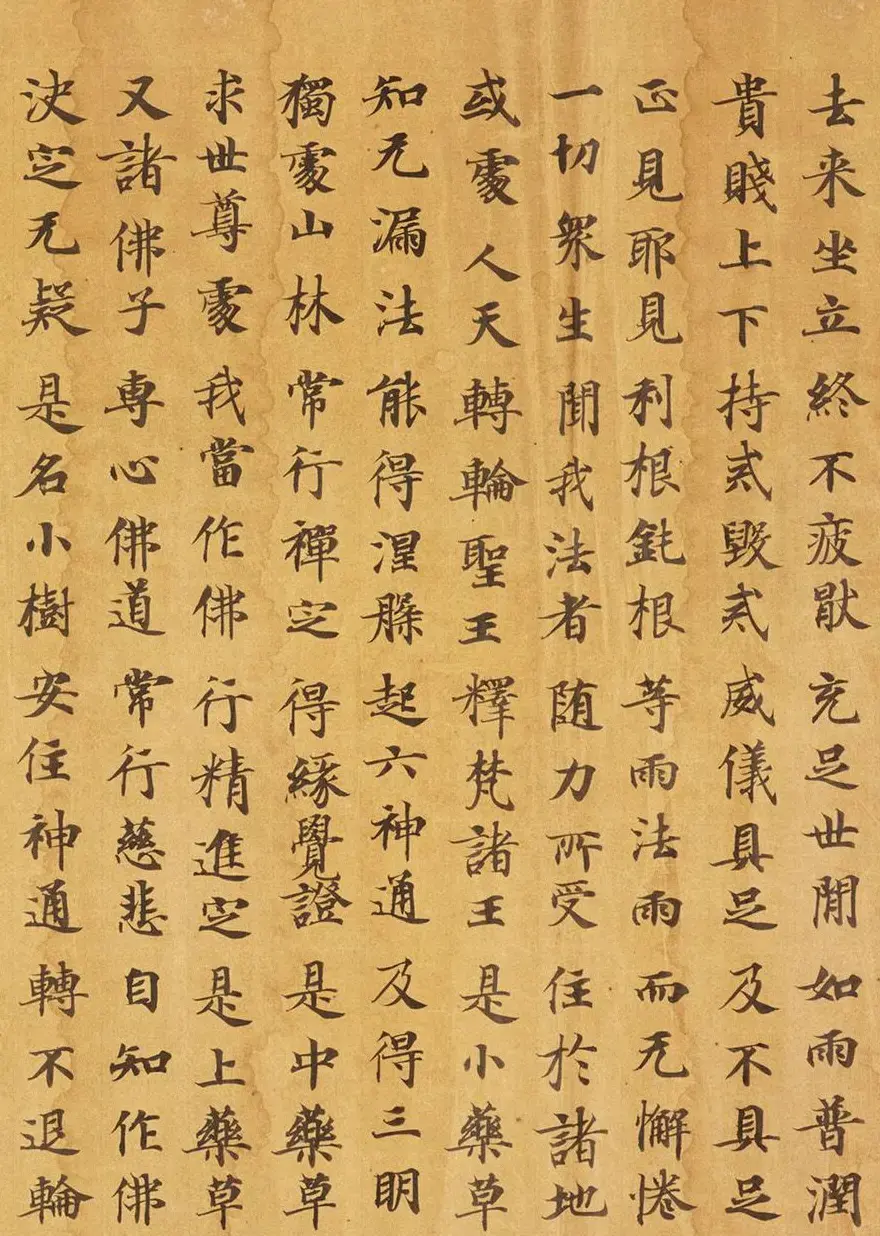 去来坐立終不疲猒充足世閒如雨普潤
貴賤上下持戒毀戒威儀具足及不具足
正見耶見利根鈍根等雨法雨而无懈惓
一切眾生聞我法者随力所受住於諸地
或處人天轉輪聖王釋梵諸王是小藥草
知无漏法能得涅槃起六神通及得三明
獨處山林常行禪定得緣覺證是中藥草
求世尊處我當作佛行精進定是上藥草
又諸佛子專心佛道常行慈悲自知作佛
決定无疑是名小樹安住神通轉不退輪